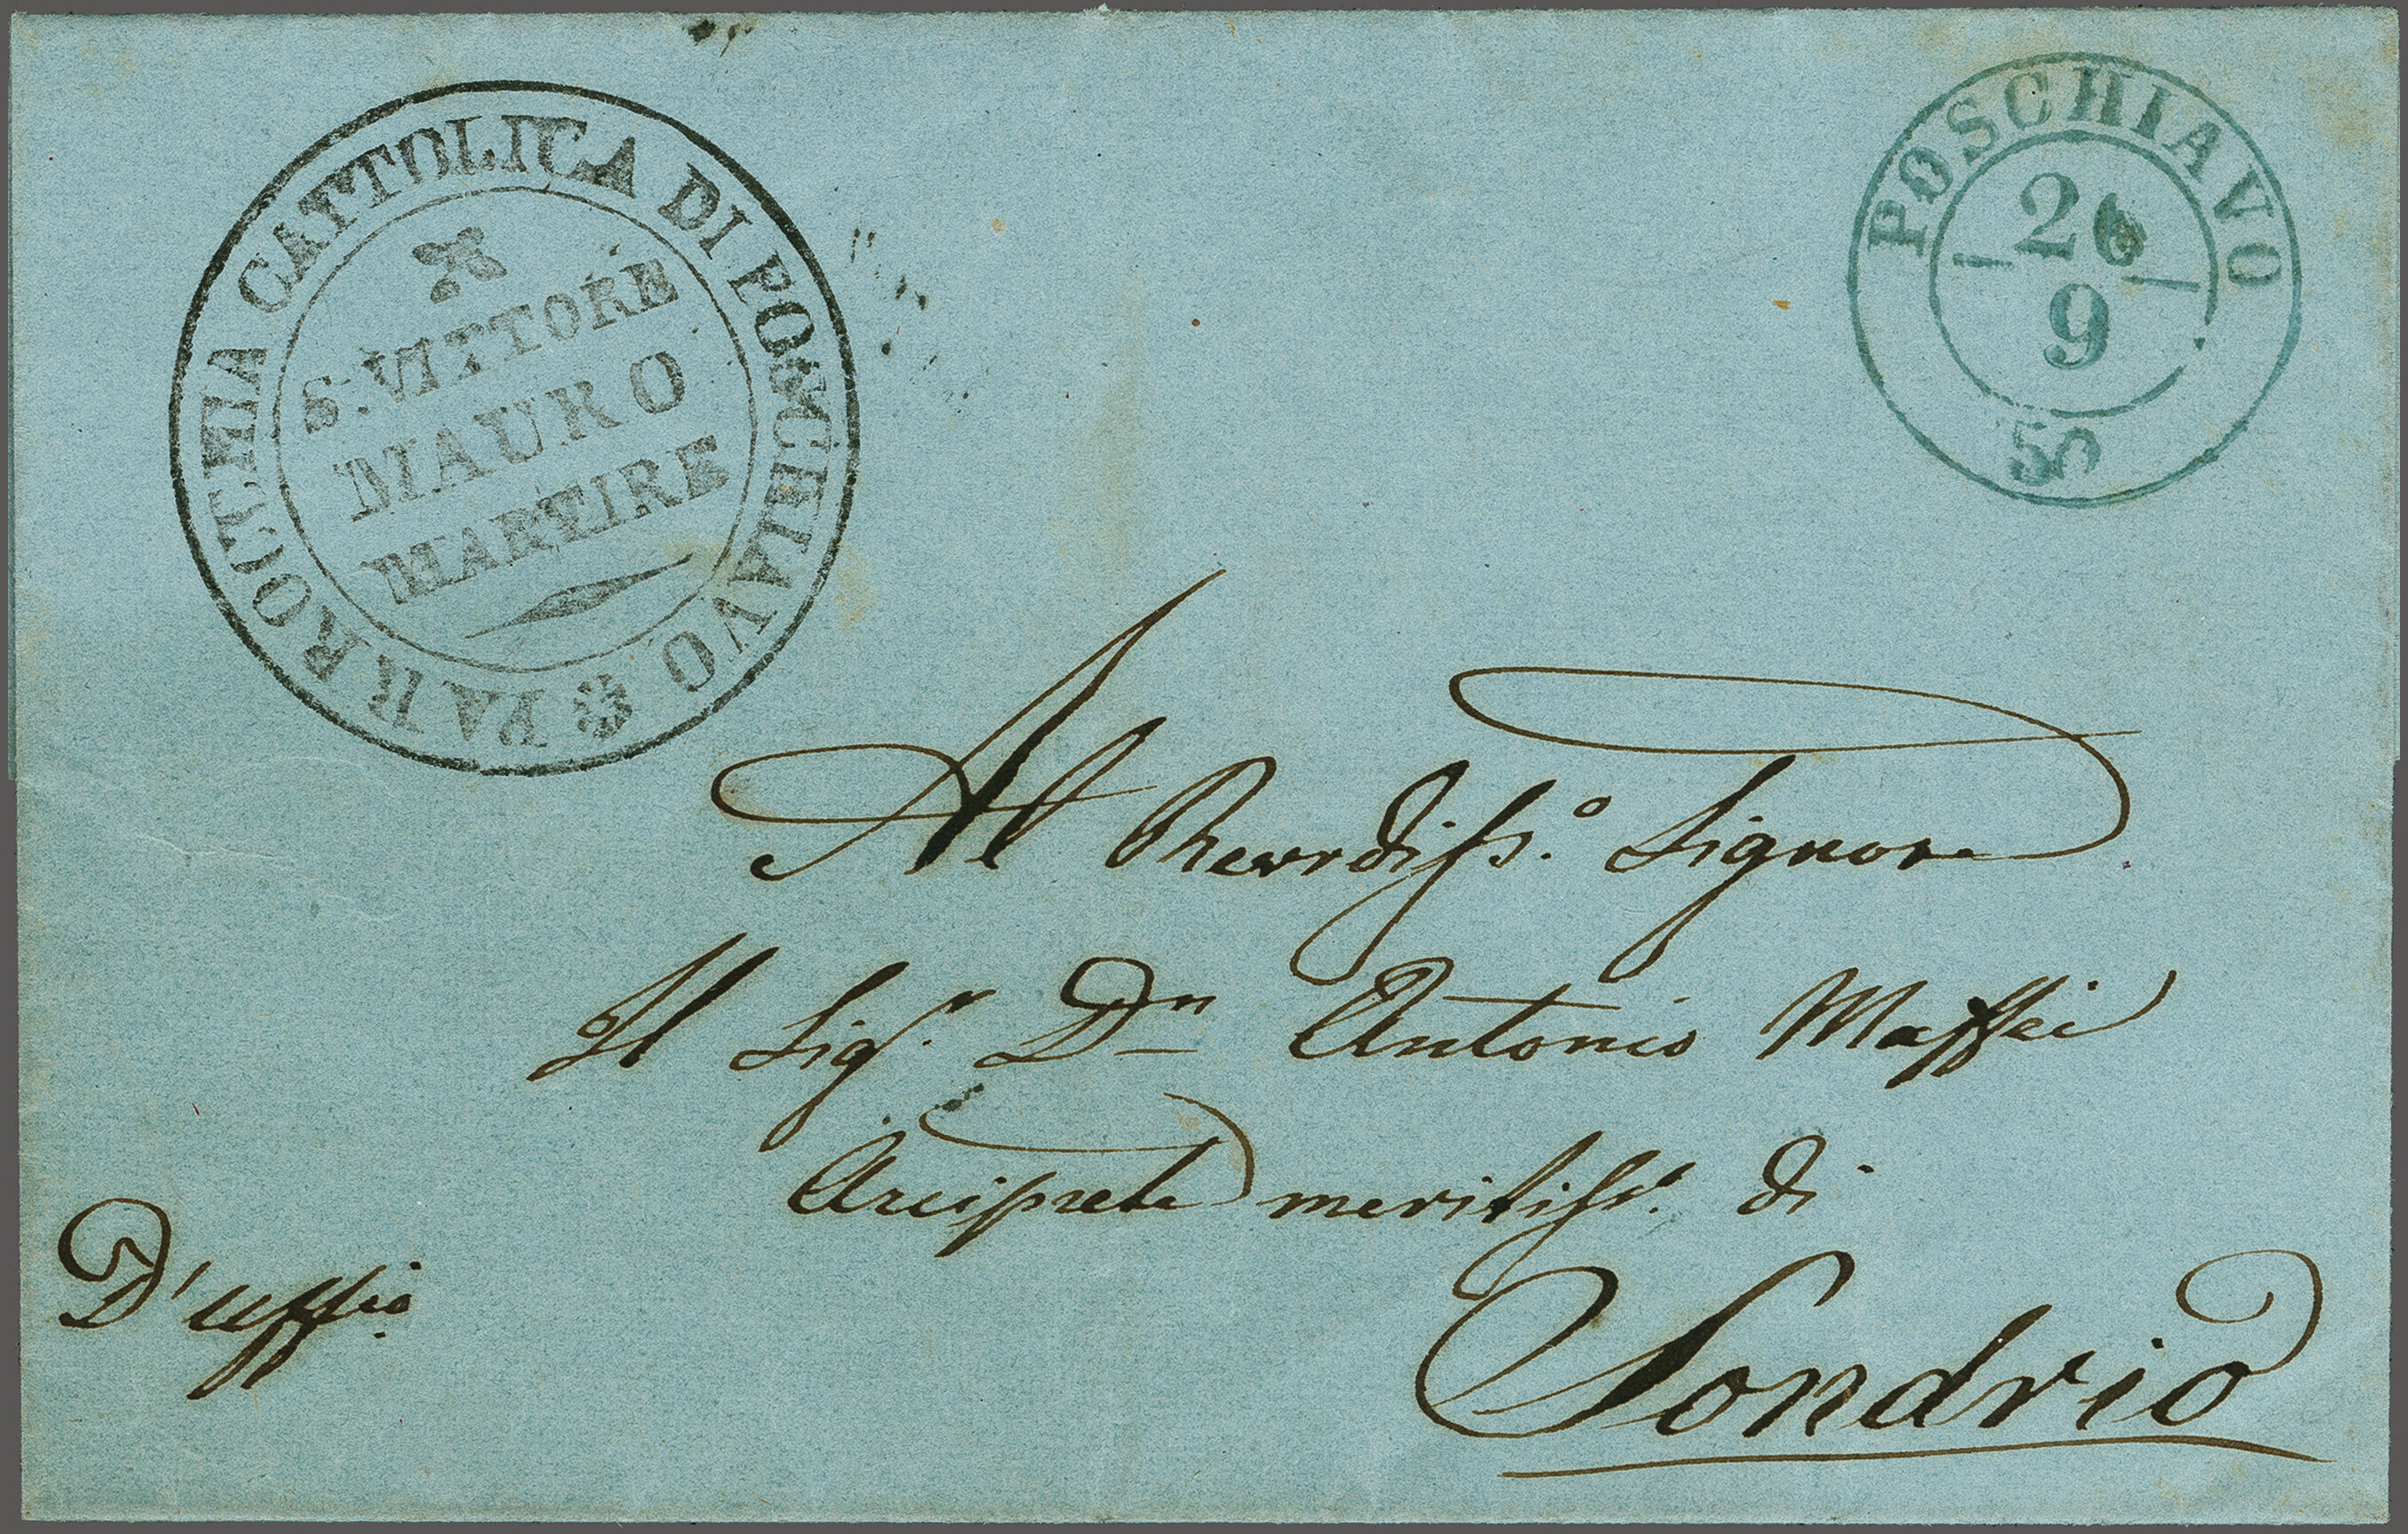 PARROCCHIA CATTOLICA DI POSCHIAVO
S. VITTORE
MAURO
MARTIRE
POSCHIAVO
26
9
50
Al Revrdiss.º Signore
Il Sigr. Dn Antonio Maffei
Arciprete meritiss.º di
Sondrio
D'uffio